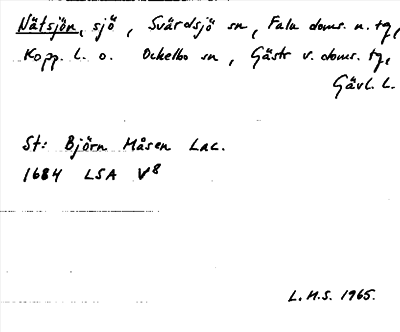 Nätsjön, sjö, Svärdsjö sn, Falu doms. n. tg,
Kopp. L. o. Ockelbo sn, Gästr v. doms. tg,
Gävl. L.
St: Björn Måsen Lac.
1684 LSA V8
L.H.S. 1965.